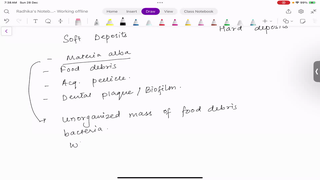 7:39 AM Sun 24 Dec
Radhika's Notebook — Working offline
Home Insert Draw View Class Notebook
Soft Deposits
Hard deposits
- Materia alba
- Food debris
- Acq. pellicle.
- Dental plaque / Biofilm.
Unorganized mass of food debris
bacteria.
W